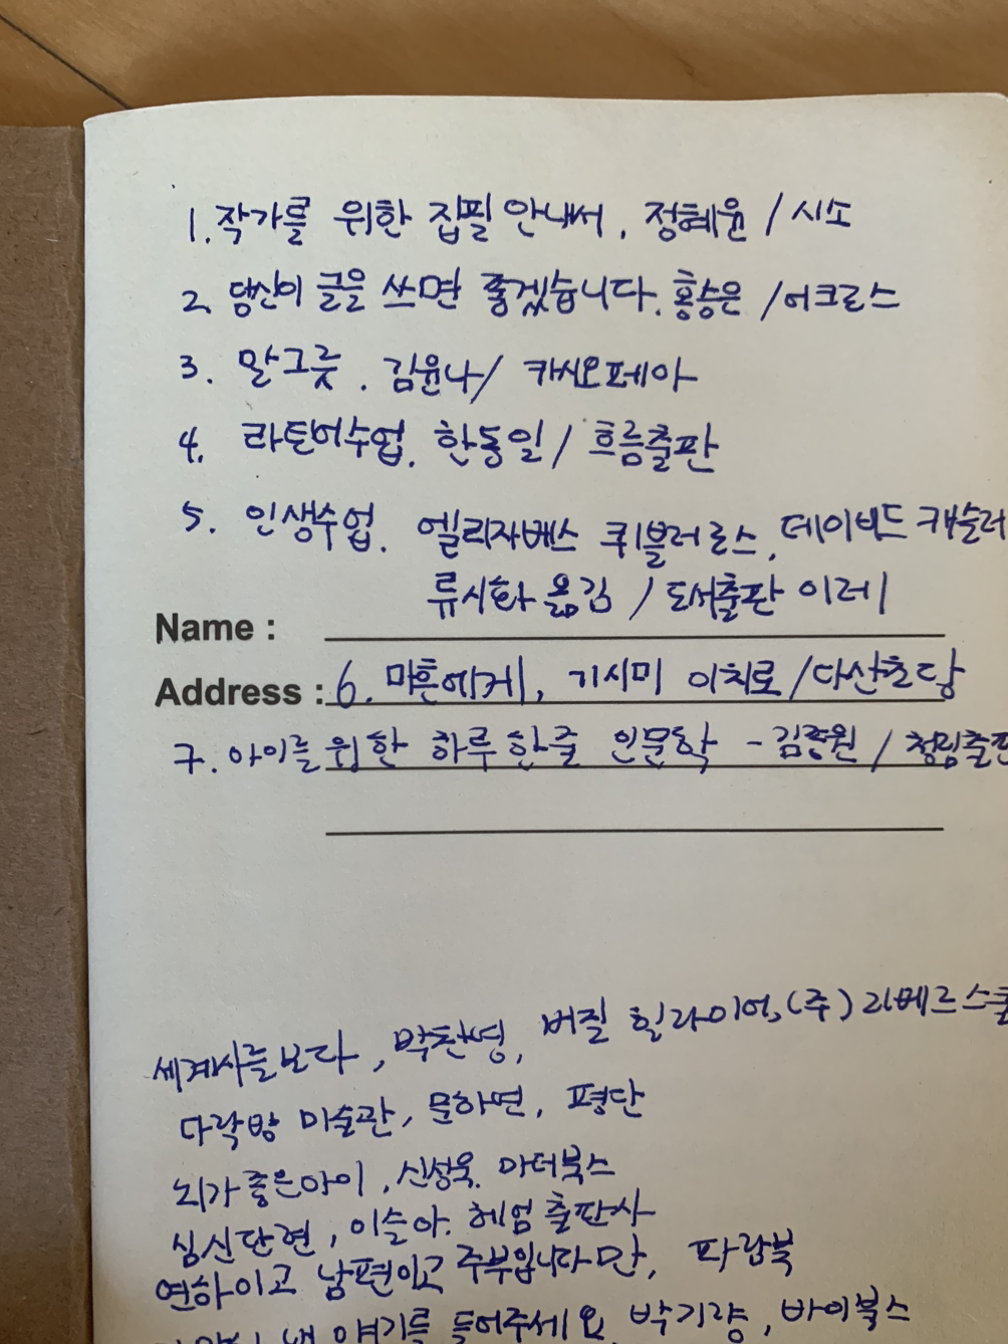 1. 작가를 위한 집필 안내서, 정혜윤 / 시소
2. 당신이 글을 쓰면 좋겠습니다. 홍승은 / 어크로스
3. 말그릇. 김윤나 / 카시오페아
4. 라틴어수업. 한동일 / 흐름출판
5. 인생수업. 엘리자베스 퀴블러로스, 데이비드 캐슬러
류시화 옮김 / 도서출판 이레
Name :
Address : 6. 마흔에게, 기시미 이치로 / 다산초당
7. 아이를 위한 하루 한줄 인문학 - 김종원 / 청림출판
세계사를 보다, 박찬영, 버질 힐라이어, (주) 리베르스쿨
다락방 미술관, 문하연, 평단
뇌가 좋은아이, 신성욱. 마더북스
심신단련, 이슬아. 헤엄 출판사
연하이고 남편이고 주부입니다만, 파람북
내 얘기를 들어주세요, 박기량, 바이북스